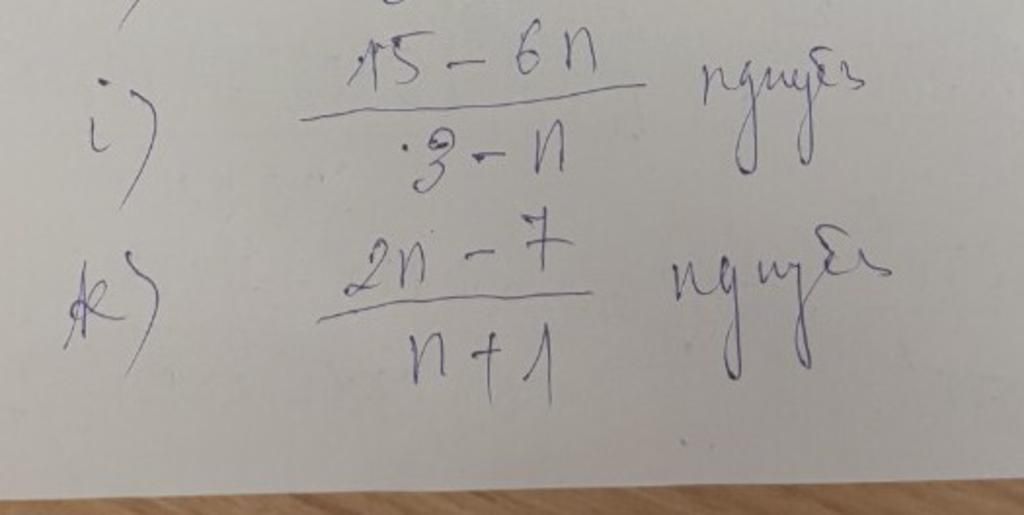 i) \frac{15 - 6n}{3 - n} nguyên
k) \frac{2n - 7}{n + 1} nguyên